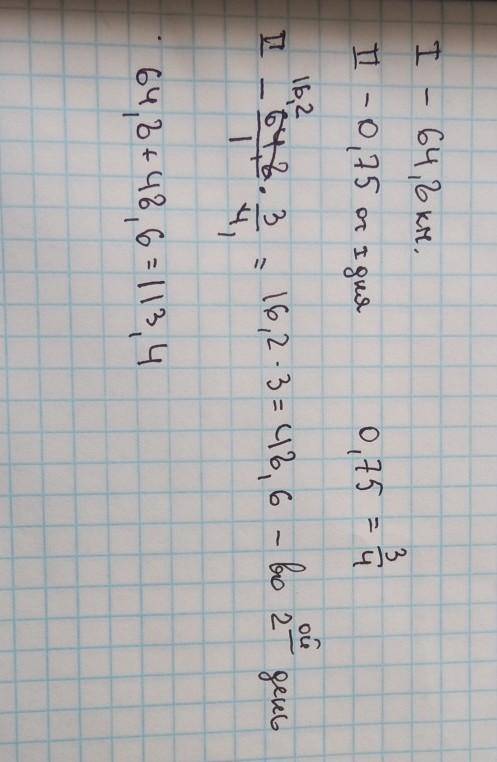 I – 64,8 км.
II – 0,75 от I дня 0,75 = 3/4
II – 64,8/1 · 3/4 = 16,2 · 3 = 48,6 – во 2ой день
16,2 1
64,8 + 48,6 = 113,4